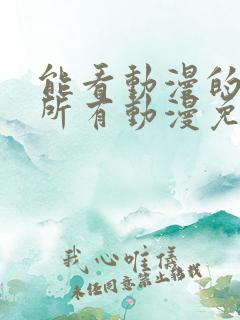 能看動漫的
所有動漫免
我心唯儀
未经同意禁止转载